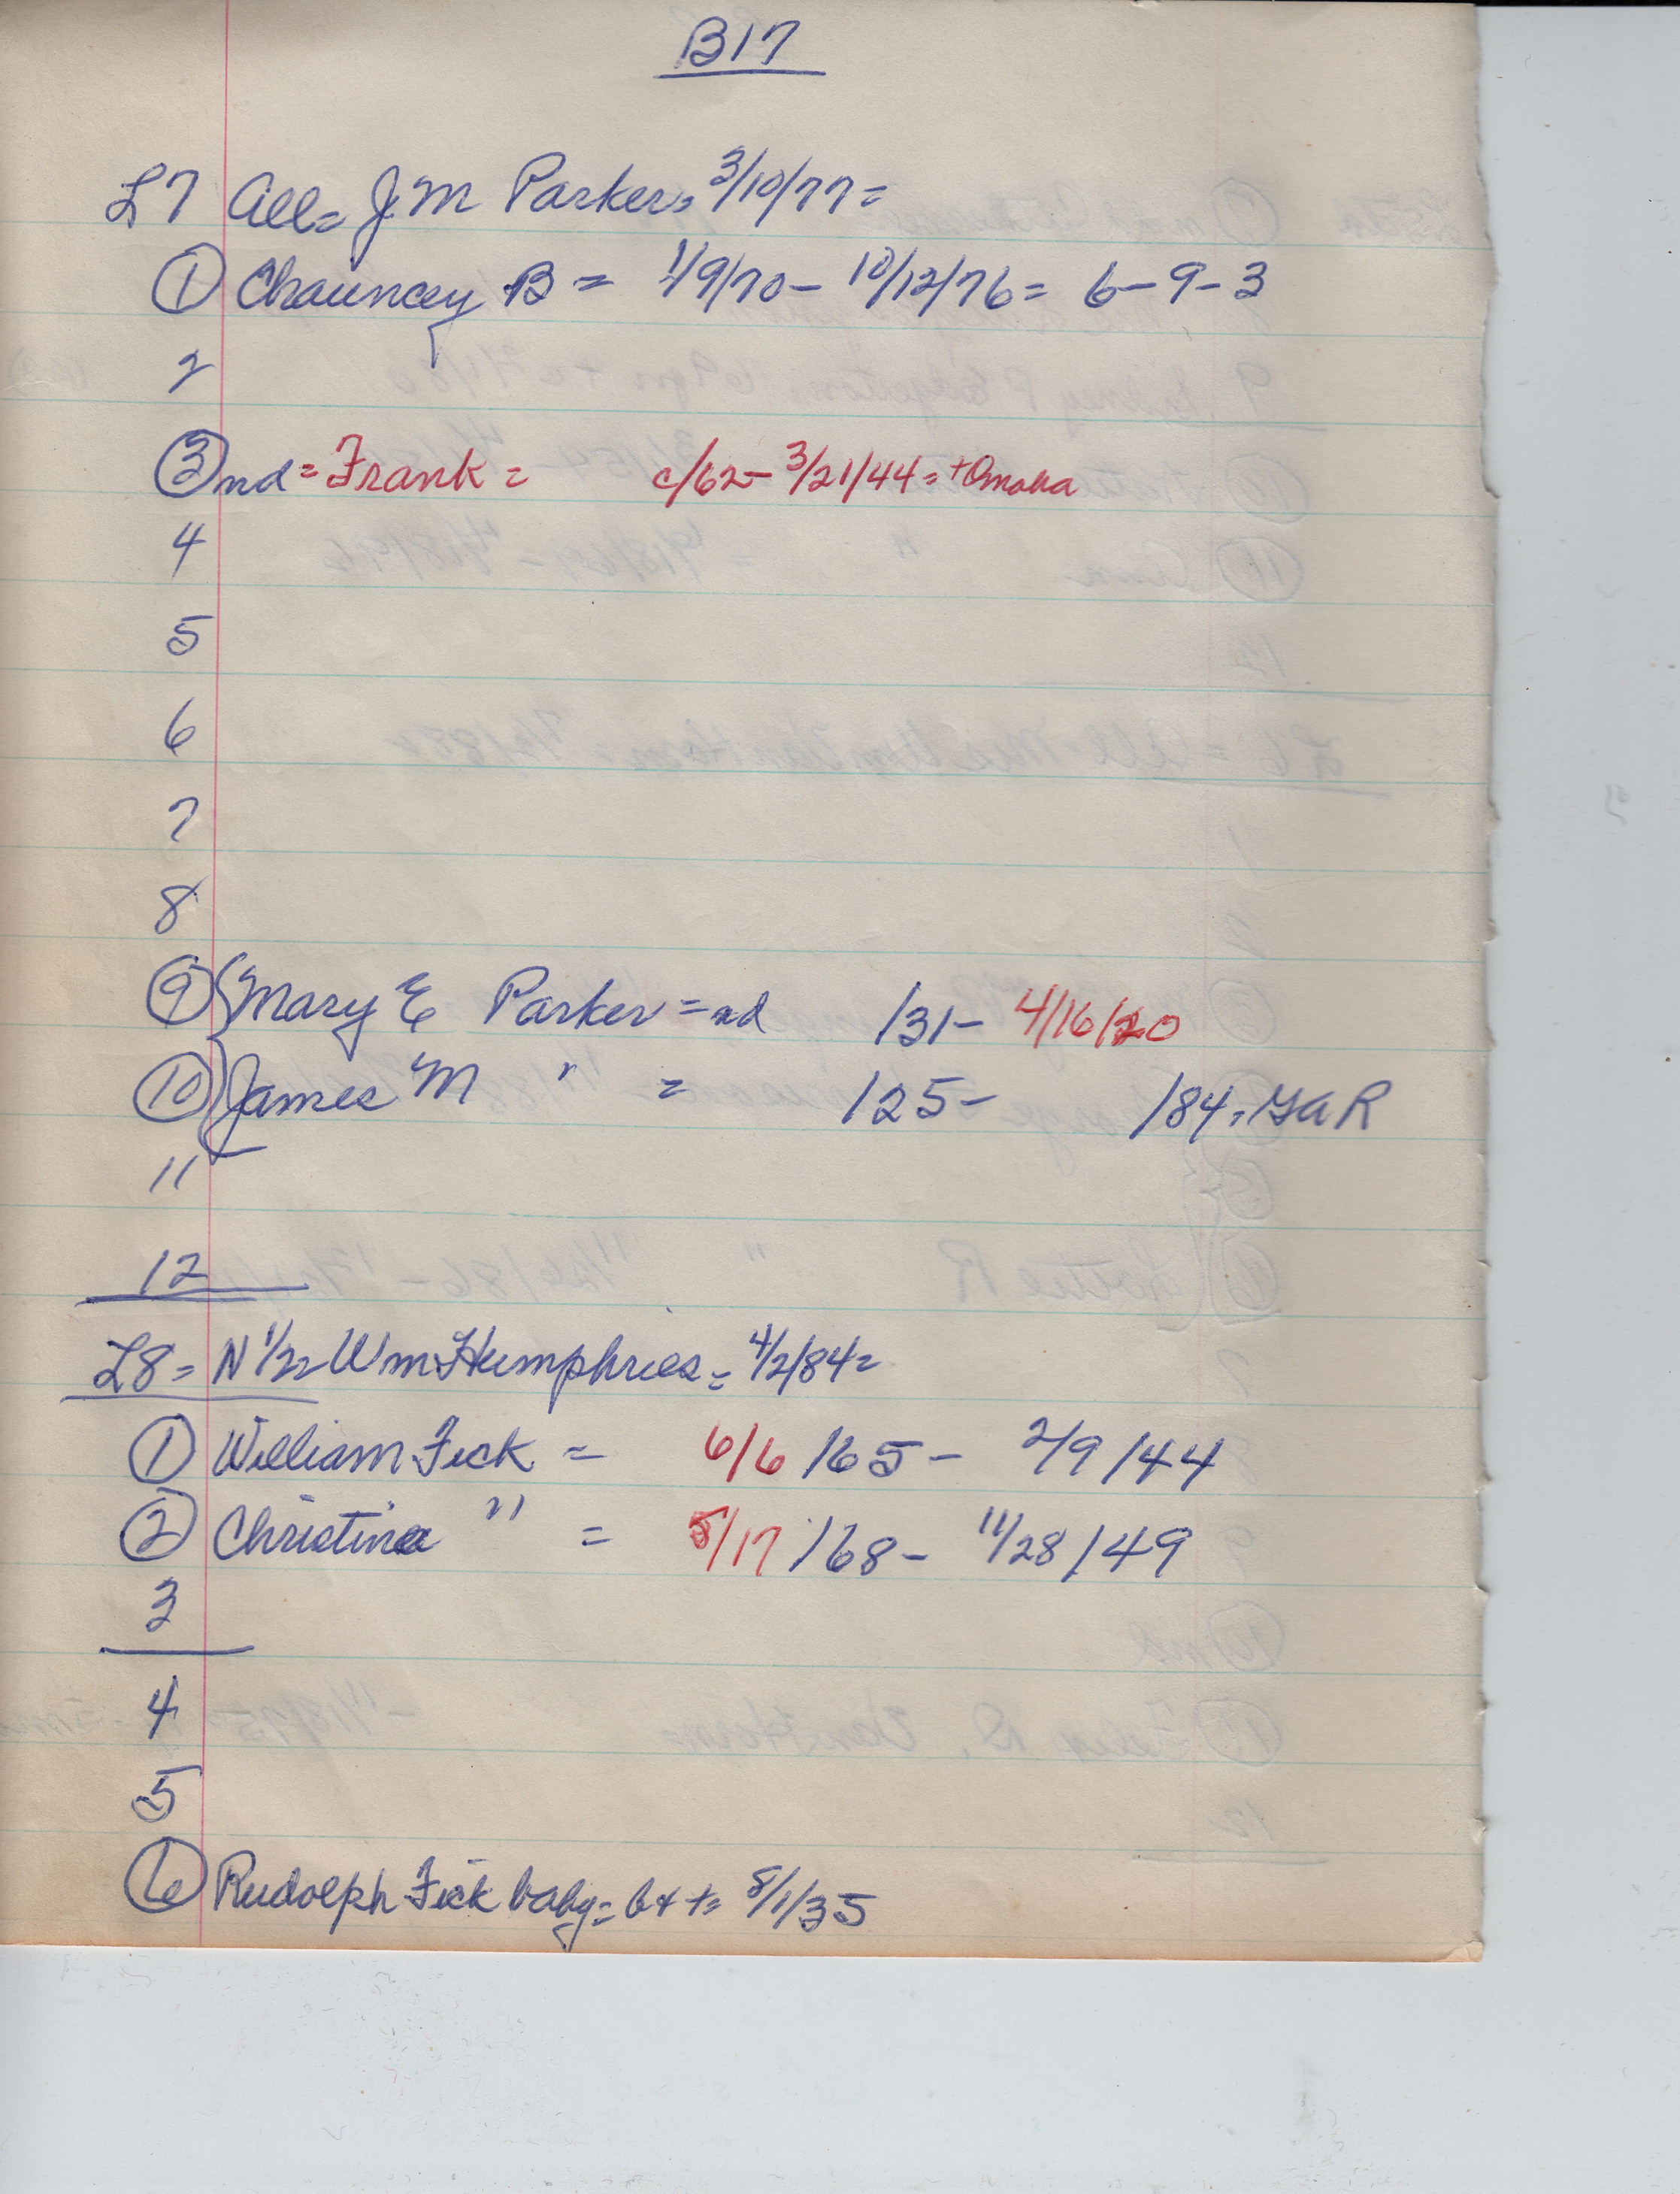 B17
L7 All= J. M Parker= 3/10/77=
1 Chauncey B = 1/9/70 - 10/12/76 = 6-9-3
2
3 nd = Frank = c/62 - 3/21/44 = + Omaha
4
5
6
7
8
9 Mary E Parker = nd /31 - 4/16/20
10 James M " = /125 - /84, GAR
11
12
L8 = N 1/2= Wm Humphries = 4/2/84=
1 William Fick = 6/6/65 - 2/9/44
2 Christina " = 5/17/68 - 11/28/49
3
4
5
6 Rudolph Fick baby = b + += 8/1/35